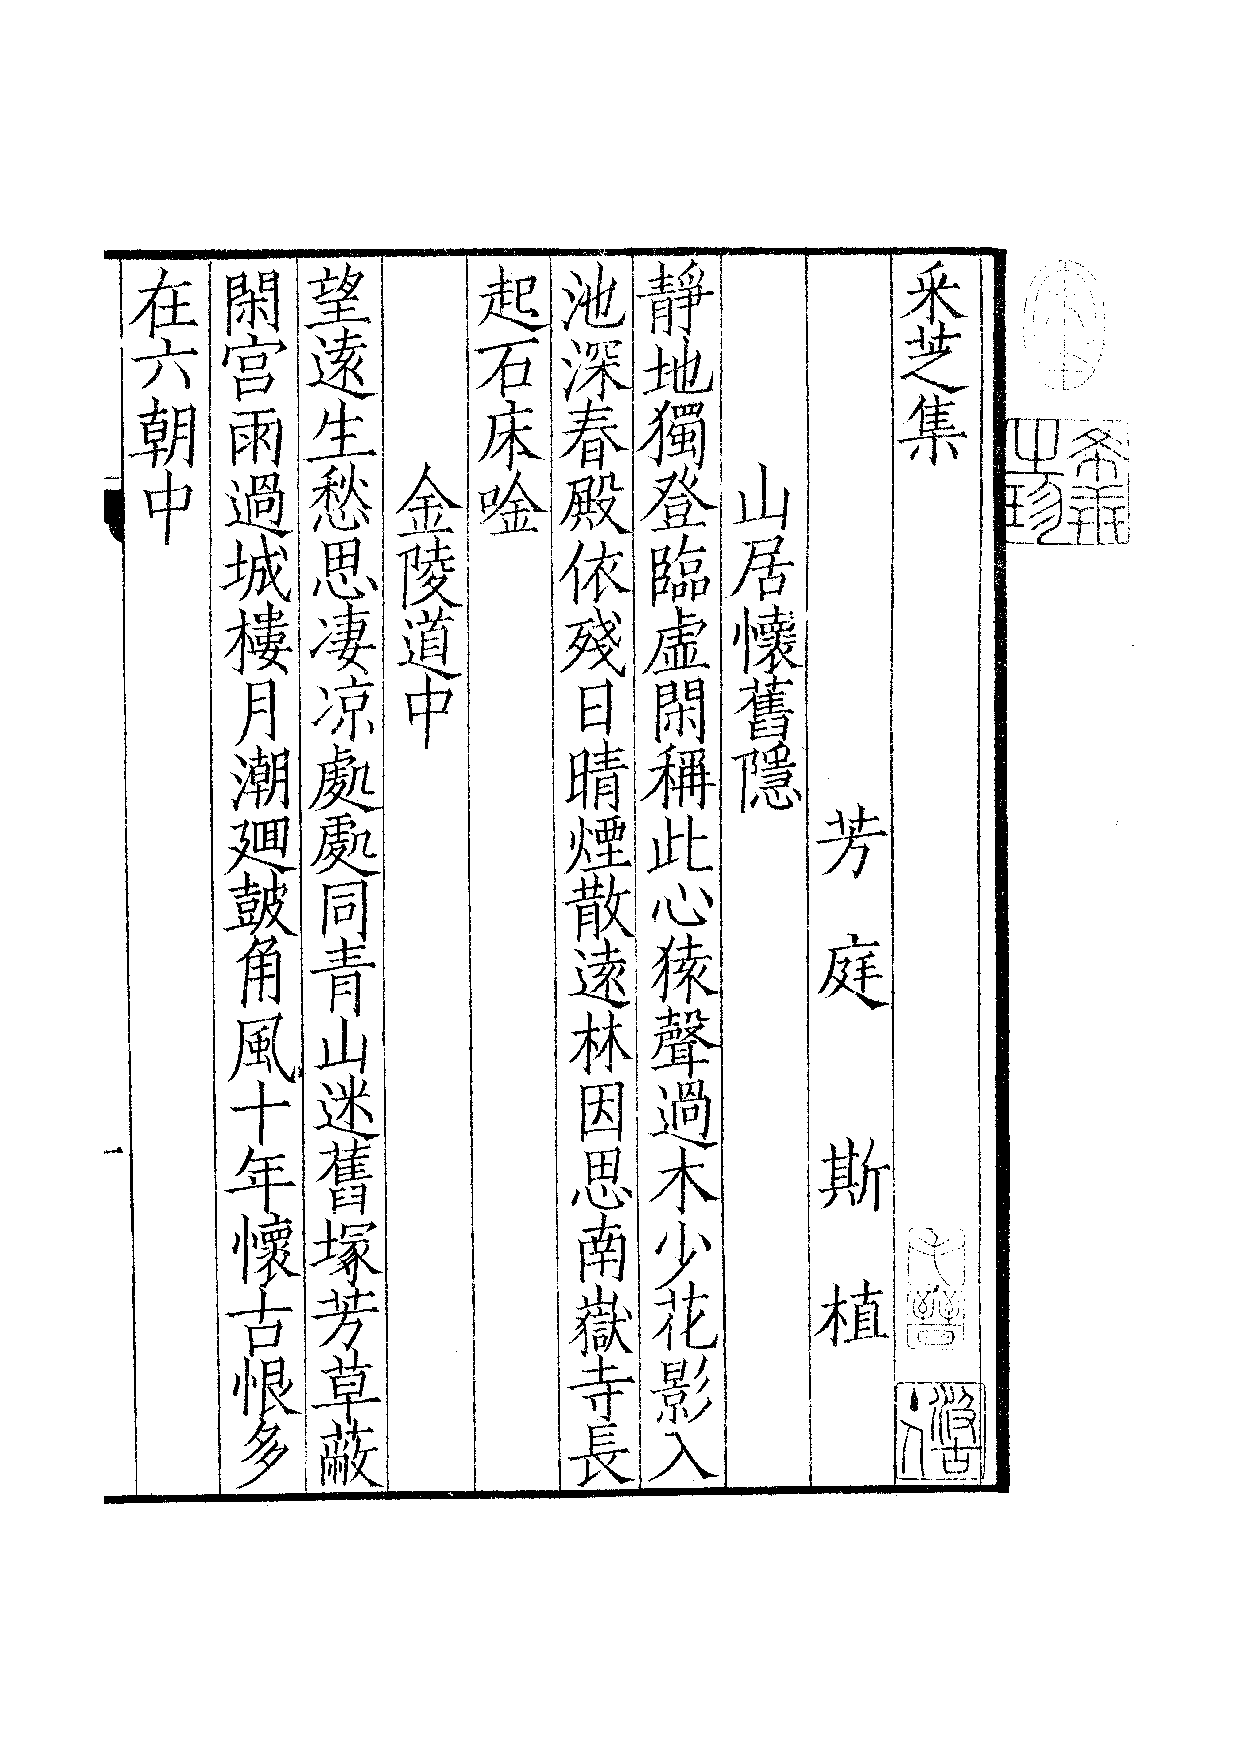 采芝集
芳庭斯植
山居懷舊隱
靜地獨登臨虛閑稱此心猿聲過木少花影入
池深春殿依殘日晴煙散遠林因思南嶽寺長
起石床唫
金陵道中
望遠生愁思凄凉處處同青山迷舊塚芳草蔽
閑宮雨過城樓月潮廻皷角風十年懷古恨多
在六朝中
一
希世之珍